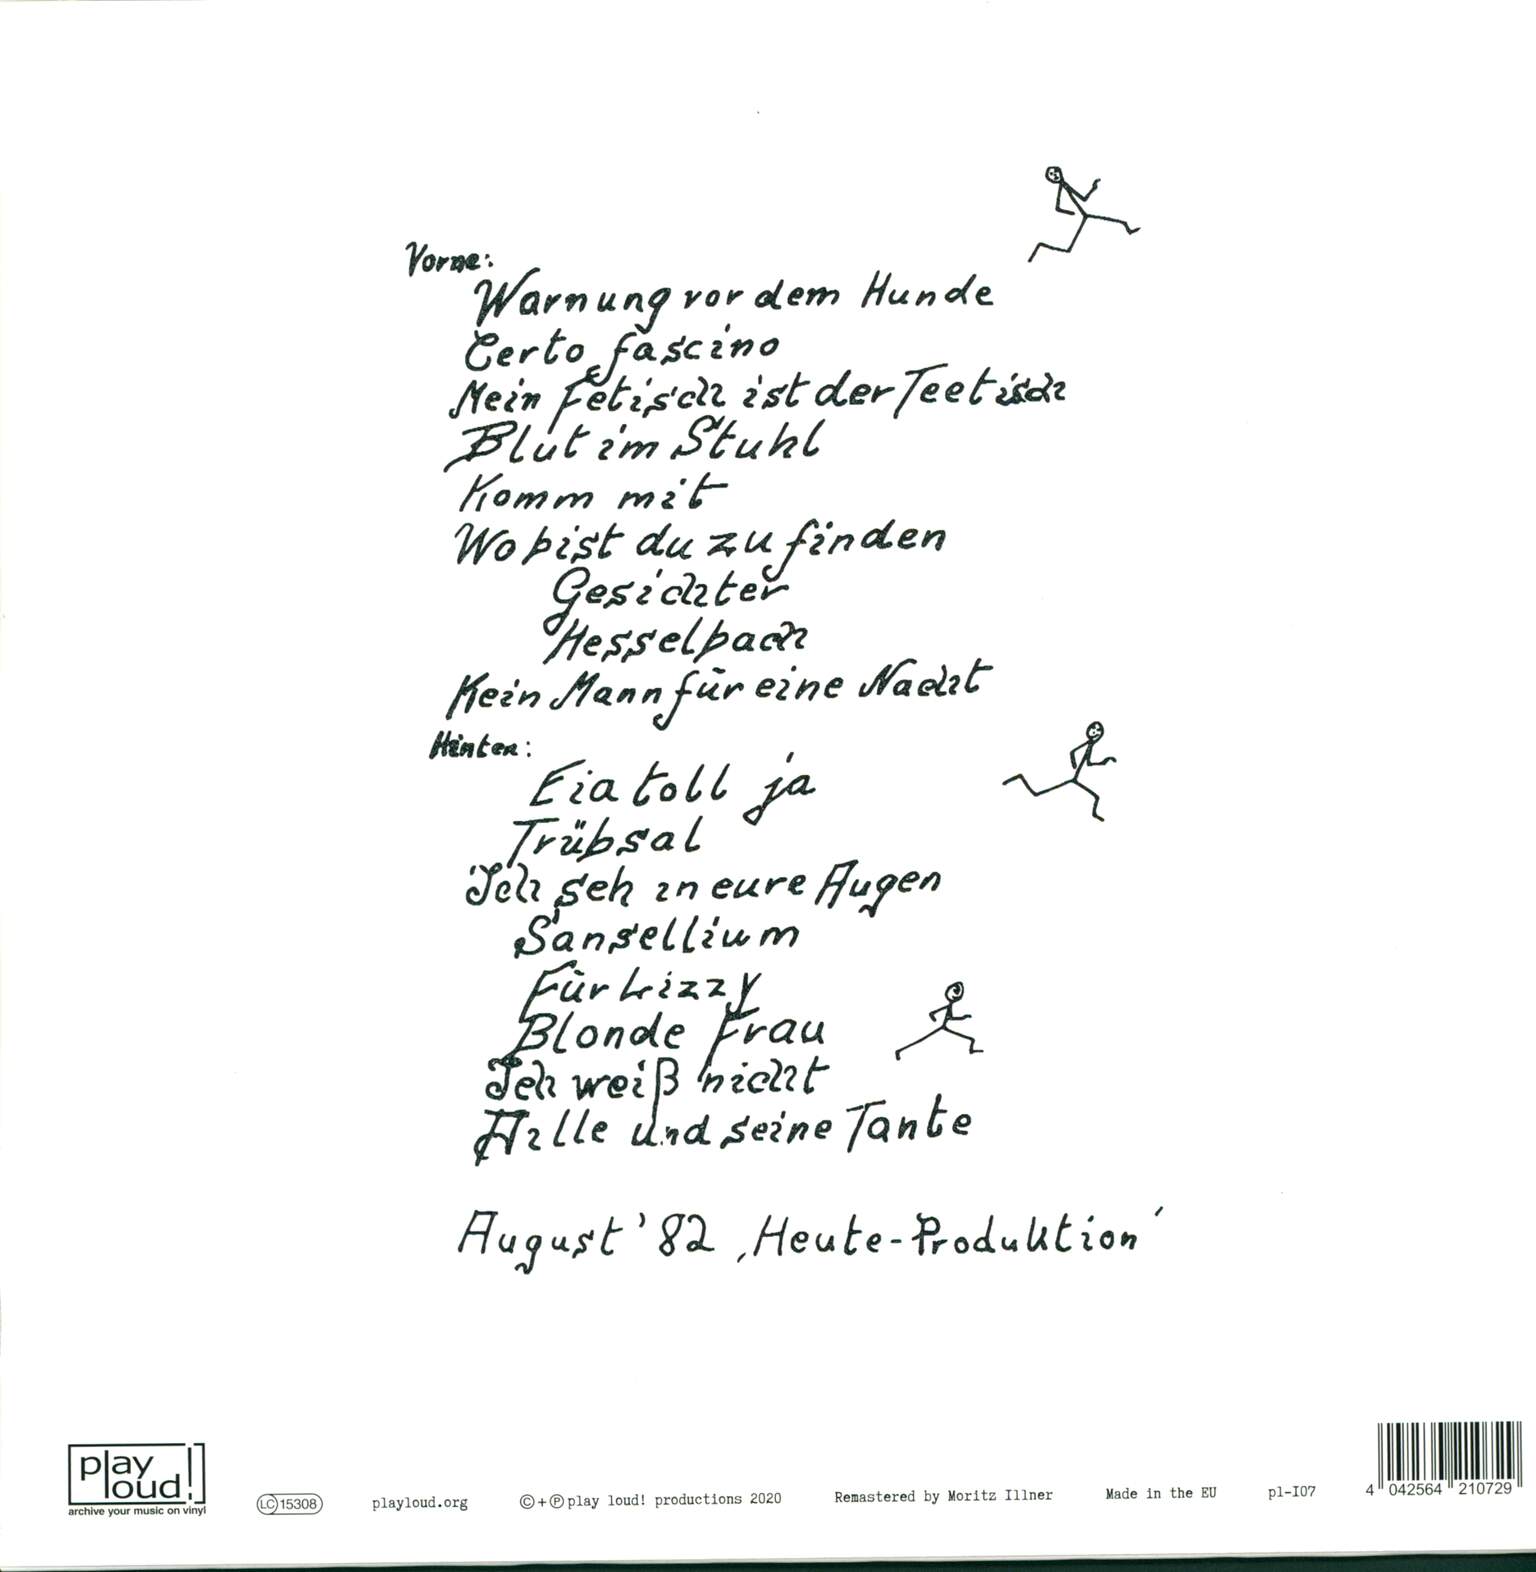 Vorne:
Warnung vor dem Hunde
Certo fascino
Mein Fetisch ist der Teetisch
Blut im Stuhl
Komm mit
Wo bist du zu finden
Gesichter
Hesselbach
Kein Mann für eine Nacht
Hinten:
Eia toll ja
Trübsal
Ich seh in eure Augen
Sansellium
Für Lizzy
Blonde Frau
Ich weiß nicht
Hille und seine Tante
August '82 ‚Heute-Produktion'
play loud!
archive your music on vinyl
LC 15308
playloud.org
©+℗ play loud! productions 2020
Remastered by Moritz Illner
Made in the EU
pl-I07
4 042564 210729